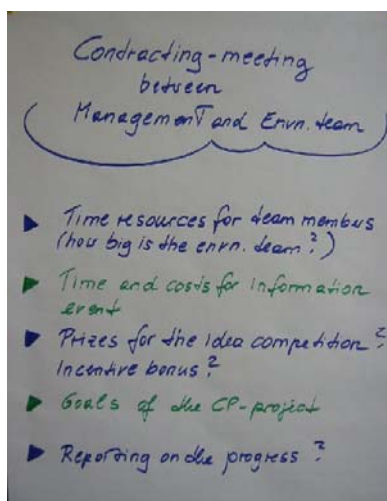 Contracting-meeting
between
Management and Envn. team
Time resources for team members
(how big is the envn. team?)
Time and costs for information
event
Prizes for the idea competition?
Incentive bonus?
Goals of the CP-project
Reporting on the progress?